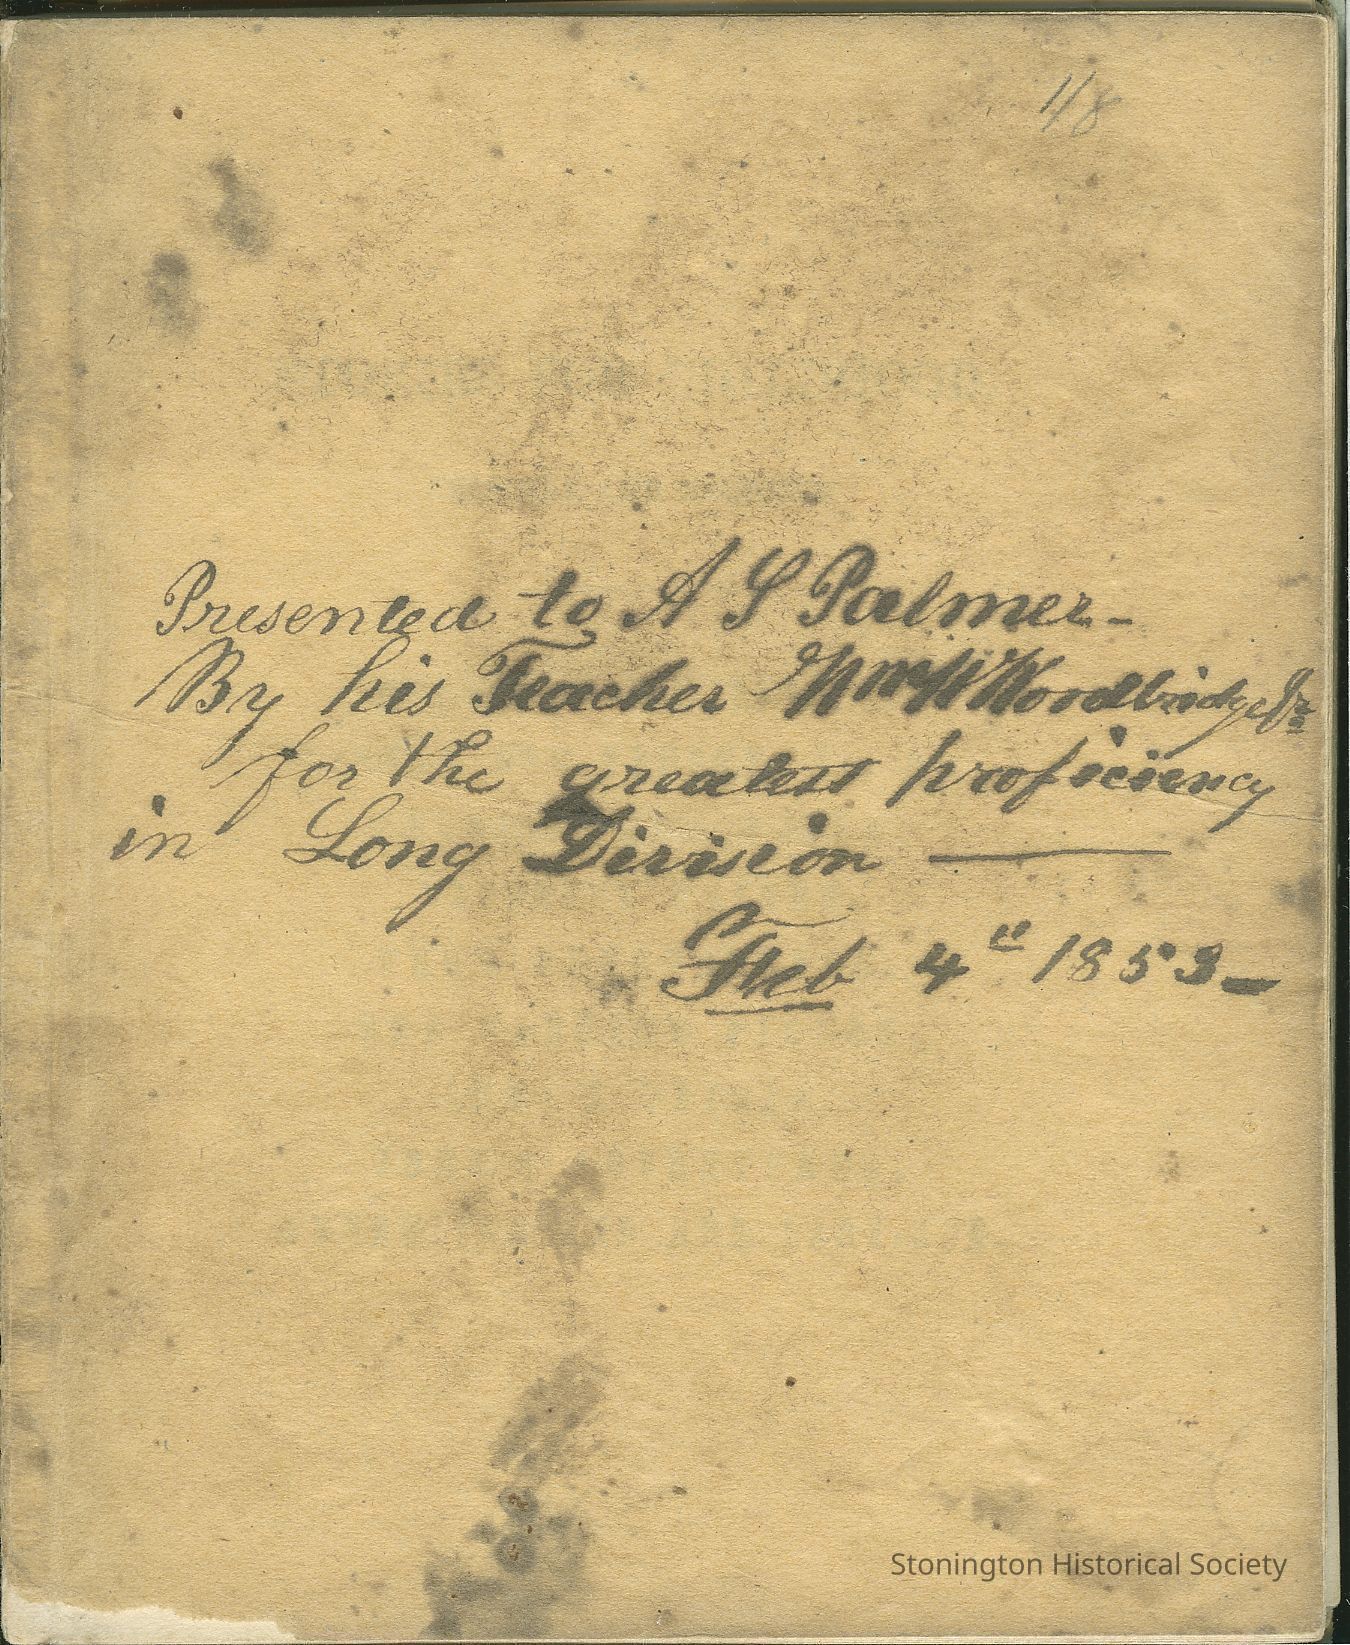 1/8
Presented to A S Palmer -
By his Teacher Wm W Woodbridge Jr
for the greatest proficiency
in Long Division —
Feb 4th 1853 -
Stonington Historical Society